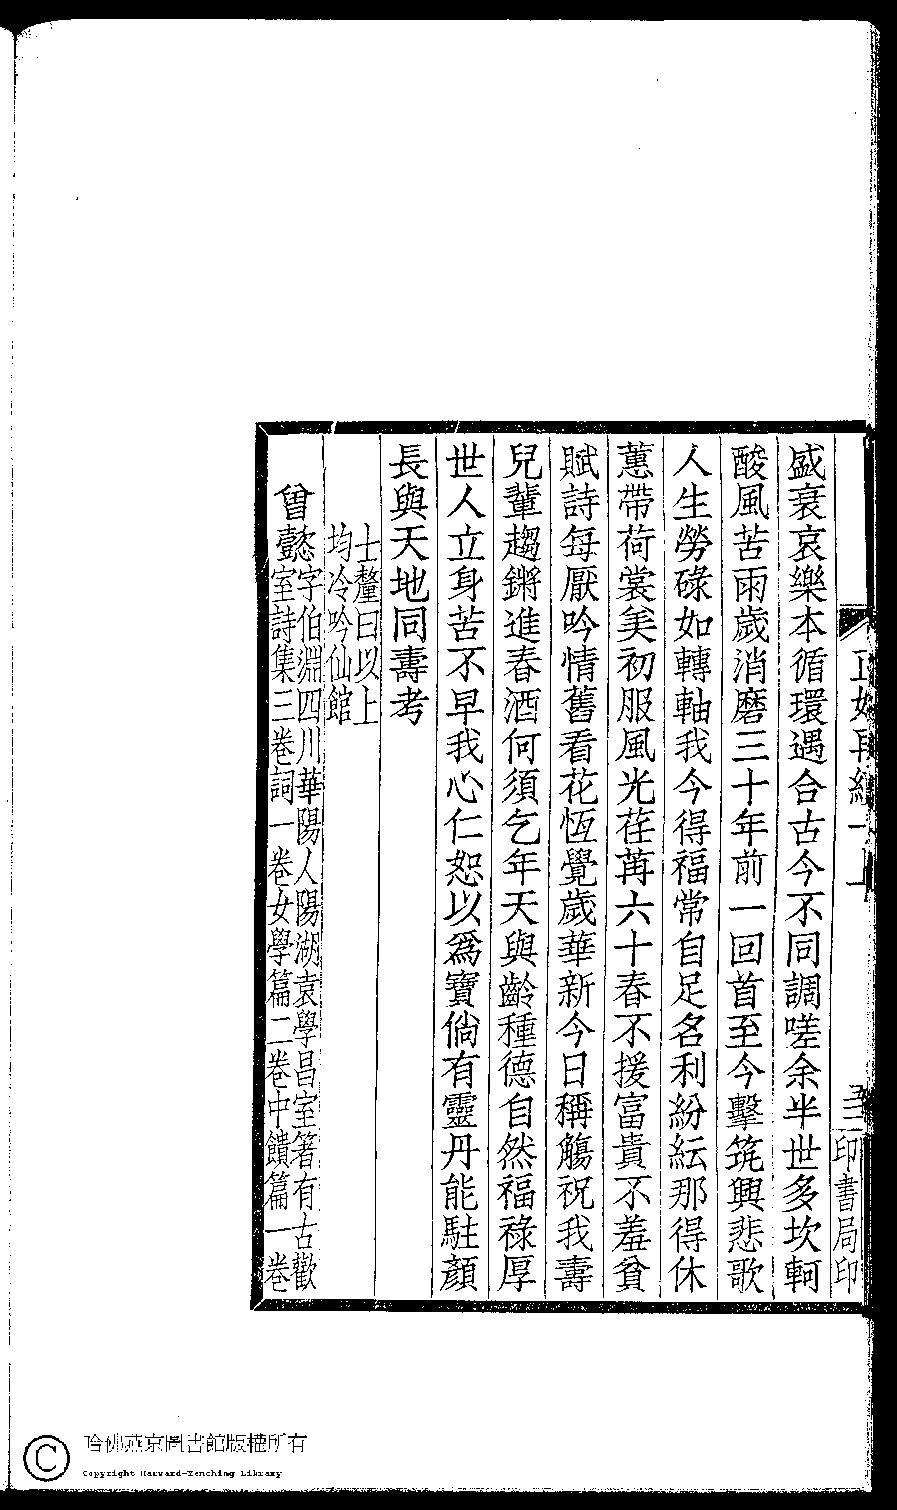 盛衰哀樂本循環遇合古今不同調嗟余半世多坎軻
酸風苦雨歲消磨三十年前一回首至今擊筑興悲歌
人生勞碌如轉軸我今得福常自足名利紛紜那得休
蕙帶荷裳美初服風光荏苒六十春不援富貴不羞貧
賦詩每厭吟情舊看花恆覺歲華新今日稱觴祝我壽
兒輩趨鏘進春酒何須乞年天與齡種德自然福祿厚
世人立身苦不早我心仁恕以爲寶倘有靈丹能駐顏
長與天地同壽考
士釐曰以上
均冷吟仙館
曾懿字伯淵四川華陽人陽湖袁學昌室箸有古歡
室詩集三卷詞一卷女學篇二卷中饋篇一卷
印書局印
哈佛燕京圖書館版權所有
Copyright Harvard-Yenching Library